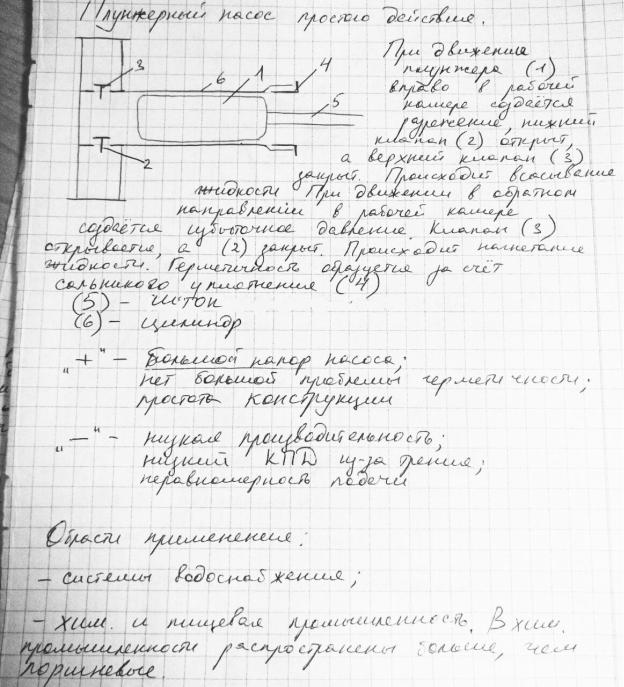 Плунжерный насос простого действия.
3
6
1
4
5
2
При движение
плунжера (1)
вправо в рабочей
камере создаётся
разрежение, нижний
клапан (2) открыт,
а верхний клапан (3)
закрыт. Происходит всасывание
жидкости При движении в обратном
направлении в рабочей камере
создаётся избыточное давление. Клапан (3)
открывается, а (2) закрыт. Происходит нагнетание
жидкости. Герметичность образуется за счёт
сальникого уплотнения (4)
(5) – шток
(6) – цилиндр
"+" – Большой напор насоса;
нет большой проблемы герметичности;
простота конструкции
"—" – низкая производительность;
низкий КПД из-за трения;
неравномерность подачи
Области применения:
– системы водоснабжения;
– хим. и пищевая промышленность. В хим.
промышленности распространены больше, чем
поршневые.